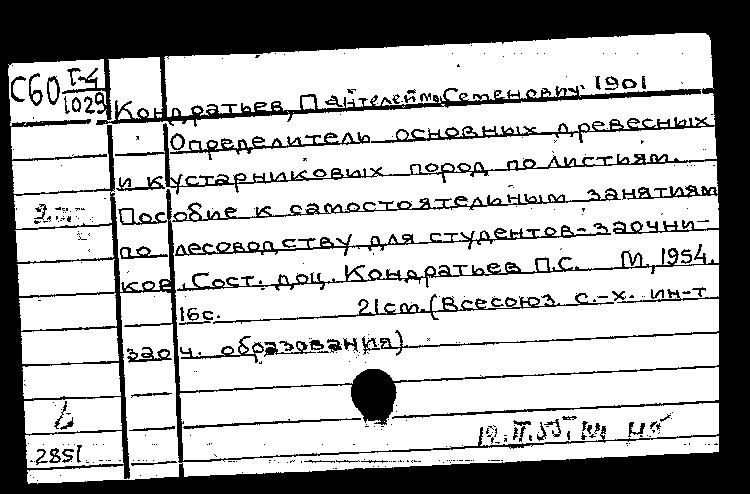 С60 I-4
1029
Кондратьев, Пантелеймон Семенович. 1901
Определитель основных древесных
и кустарниковых пород по листьям.
Пособие к самостоятельным занятиям
по лесоводству для студентов-заочни-
ков. Сост. доц. Кондратьев П.С. М., 1954.
16с. 21см. (Всесоюз. с.-х. ин-т
заоч. образования)
2851